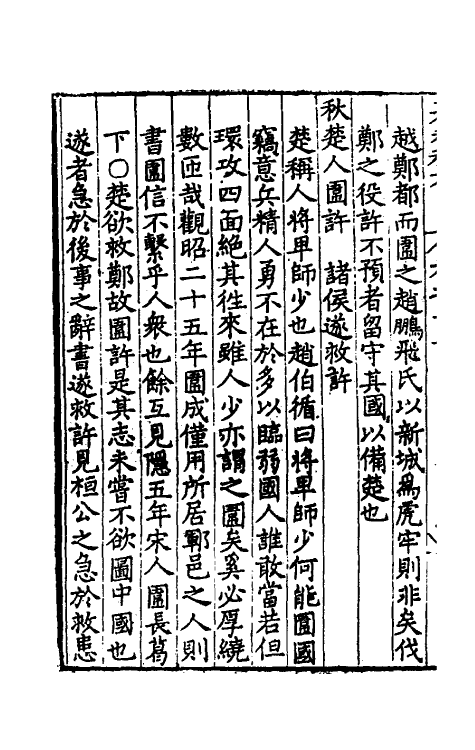 越鄭都而圍之趙鵬飛氏以新城爲虎牢則非矣伐
鄭之役許不預者留守其國以備楚也
秋楚人圍許　諸侯遂救許
楚稱人將卑師少也趙伯循曰將卑師少何能圍國
竊意兵精人勇不在於多以臨弱國人誰敢當若但
環攻四面絶其徃來雖人少亦謂之圍矣奚必厚繞
數匝哉觀昭二十五年圍成僅用所居鄆邑之人則
書圍信不繫乎人衆也餘互見隱五年宋人圍長葛
下○楚欲救鄭故圍許是其志未嘗不欲圖中國也
遂者急於後事之辭書遂救許見桓公之急於救患